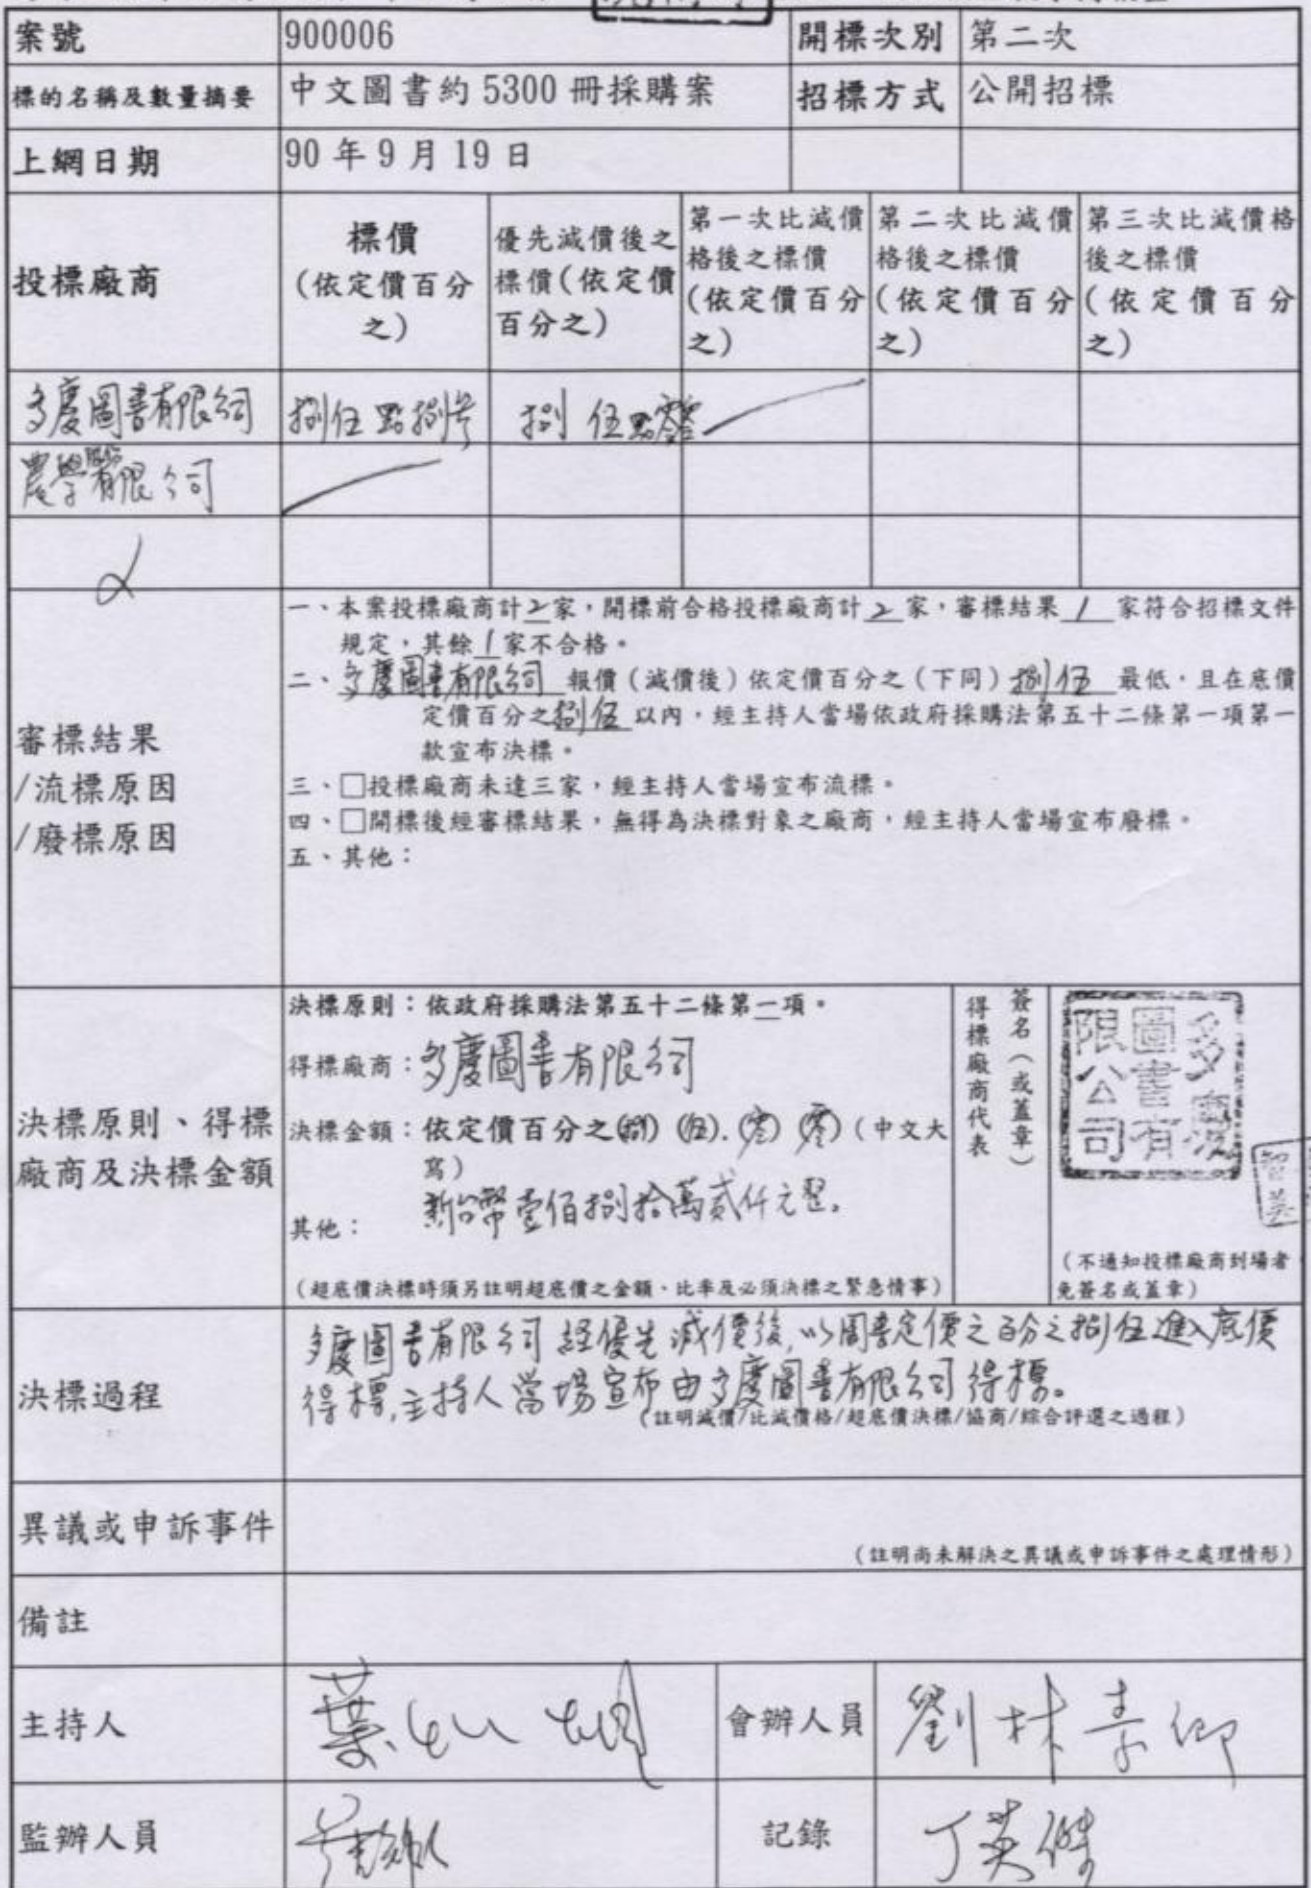 案號 900006 開標次別 第二次
標的名稱及數量摘要 中文圖書約 5300 冊採購案 招標方式 公開招標
上網日期 90 年 9 月 19 日
投標廠商
標價
(依定價百分
之)
優先減價後之
標價(依定價
百分之)
第一次比減價
格後之標價
(依定價百分
之)
第二次比減價
格後之標價
(依定價百分
之)
第三次比減價格
後之標價
(依定價百分
之)
多慶圖書有限公司 捌伍點捌 捌伍點零
農學股份有限公司
審標結果
/流標原因
/廢標原因
一、本案投標廠商計2家,開標前合格投標廠商計2家,審標結果1家符合招標文件
規定,其餘1家不合格。
二、多慶圖書有限公司報價(減價後)依定價百分之(下同)捌伍最低,且在底價
定價百分之捌伍以內,經主持人當場依政府採購法第五十二條第一項第一
款宣布決標。
三、□投標廠商未達三家,經主持人當場宣布流標。
四、□開標後經審標結果,無得為決標對象之廠商,經主持人當場宣布廢標。
五、其他:
決標原則、得標
廠商及決標金額
決標原則:依政府採購法第五十二條第一項。
得標廠商:多慶圖書有限公司
決標金額:依定價百分之(捌)(伍).(零)(零)(中文大
寫)
新台幣壹佰捌拾萬貳仟元整。
其他:
(超底價決標時須另註明超底價之金額、比率及必須決標之緊急情事)
得標廠商代表
簽名(或蓋章)
多慶
圖書有
限公司
智英
(不通知投標廠商到場者
免簽名或蓋章)
決標過程
多慶圖書有限公司經優先減價後,以圖書定價之百分之捌伍進入底價
得標,主持人當場宣布由多慶圖書有限公司得標。
(註明減價/比減價格/超底價決標/協商/綜合評選之過程)
異議或申訴事件
(註明尚未解決之異議或申訴事件之處理情形)
備註
主持人 會辦人員 劉林青仰
監辦人員 記錄 丁英傑